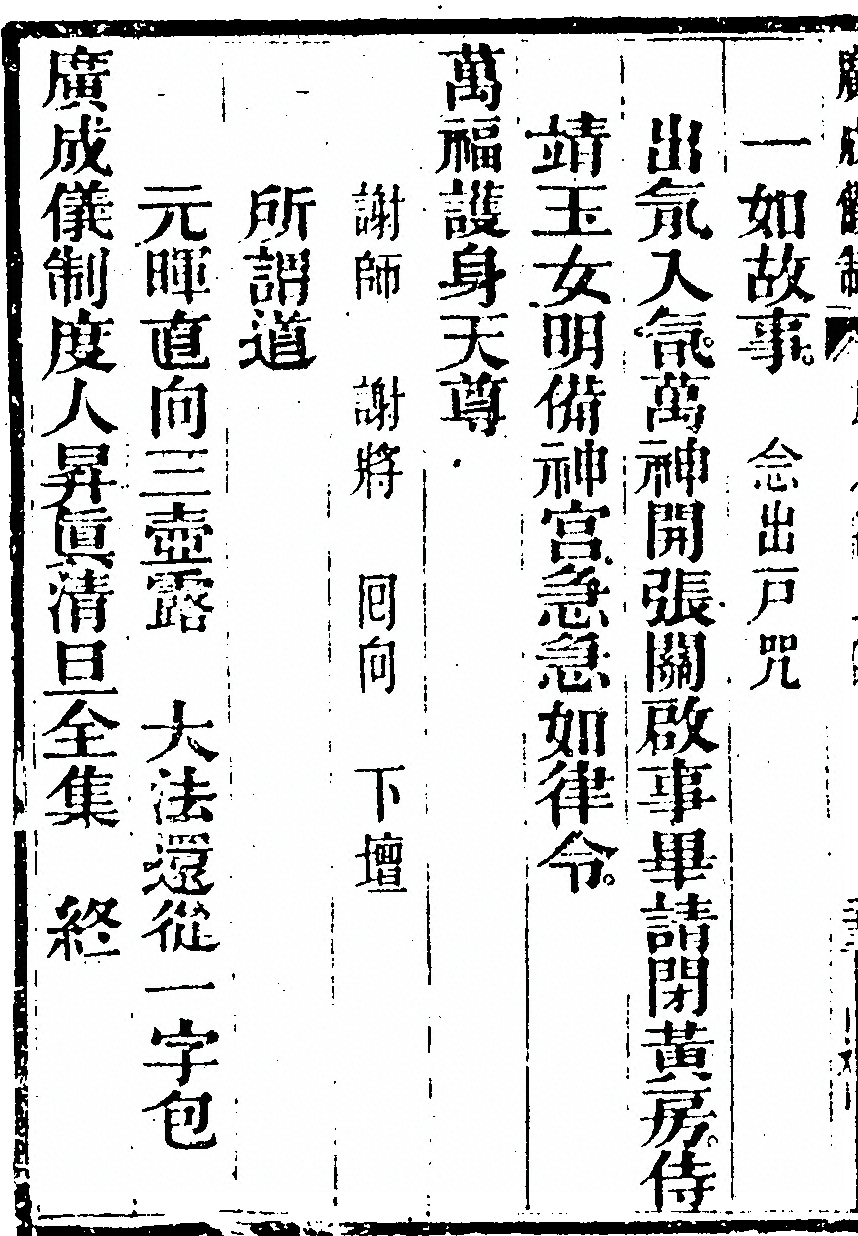 廣成儀制
一如故事。 念出戸咒
出炁入炁。萬神開張關啟事畢請閉黃房。侍
靖玉女明備神宮急急如律令。
萬福護身天尊
謝師 謝將 囘向 下壇
所謂道
元暉直向三壺露 大法還從一字包
廣成儀制度人昇眞清旦全集 終